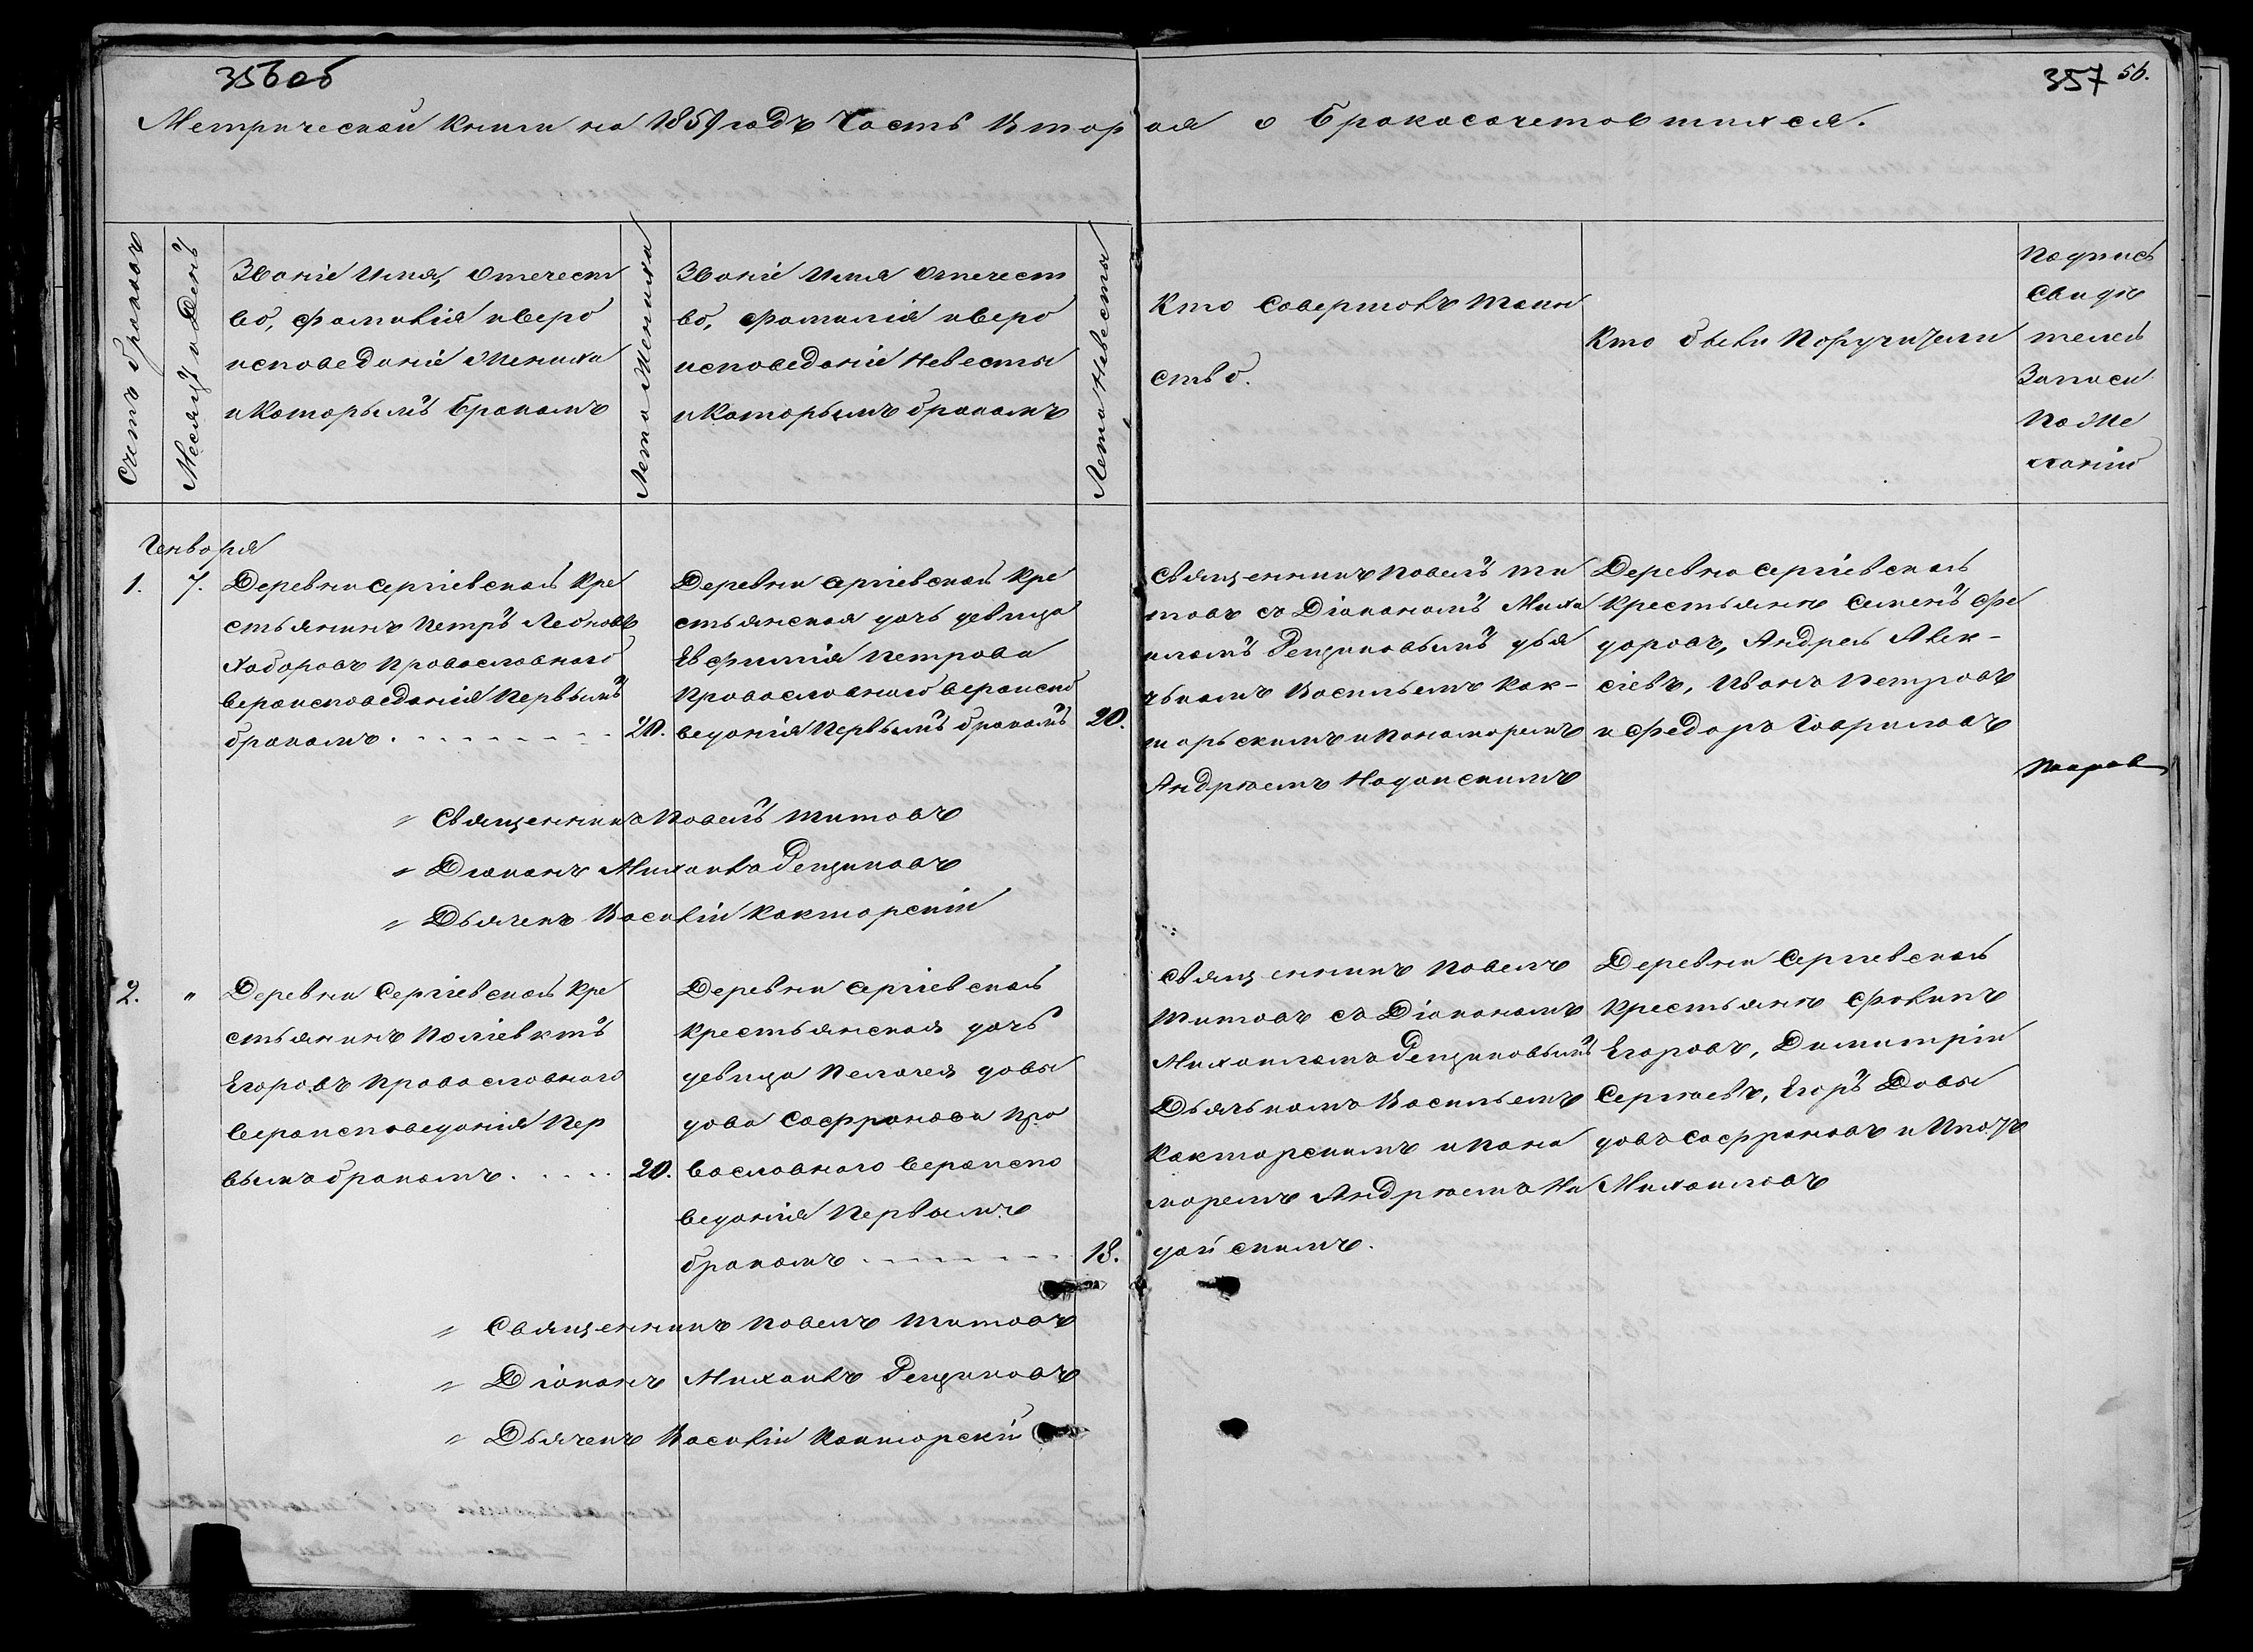 356 об
357 56.
Метрической книги на 1859 годъ Часть Вторая о бракосочетовшихся.
Счетъ браковъ
Месяцъ и День
Званіе Имя, Отечест
во, Фамилія и веро
исповеданіе Жениха
и Которымъ бракомъ
Лета Жениха
Званіе Имя Отечест
во, Фамилія и веро
исповеданіе Невесты
и Которымъ бракомъ
Лета Невесты
Кто Совершалъ Таин
ство.
Кто были Поручители
Подпись
Свиде
телей
Записи
По Же
ланію
Генворя
1. 7.
Деревни Сергіевской Кре
стьянинъ Петръ Леоновъ
Хаборовъ Православного
вероисповеданія Первымъ
бракомъ 20.
Деревни Сергіевской Кре
стьянская дочь девица
Евфимія Петрова
Православного вероиспо
веданія Первымъ бракомъ 20.
Священникъ Павелъ Ти
товъ съ Діакономъ Миха
иломъ Рещиковымъ дья
чькомъ Васильемъ Как-
торьскимъ и Понаморемъ
Андрѣемъ Нодаискимъ
Деревни Сергіевской
Крестьяне Семенъ Фе
доровъ, Андрей Алек-
сіевъ, Иванъ Петровъ
и Федоръ Гавриловъ
" Священникъ Павелъ Титовъ
" Діаконъ Михаилъ Рещиковъ
" Дьячекъ Василій Какторскій
2. "
Деревни Сергіевской Кре
стьянинъ Поліевктъ
Егоровъ Православного
вероисповеданія Пер
вымъ бракомъ 20.
Деревни Сергіевской
Крестьянская дочь
девица Пелагея Давы
дова Сафронова Пра
вославного вероиспо
веданія Первымъ
бракомъ 18.
Священникъ Павелъ
Титовъ съ Діакономъ
Михаиломъ Рещиковымъ
Дьячькомъ Васильемъ
Какторскимъ и Пона
моремъ Андрѣемъ На
дайскимъ.
Деревни Сергіевской
Крестьяне Филипъ
Егоровъ, Димитрій
Сергѣевъ, Егоръ Давы
довъ Сафроновъ и
Михаиловъ
" Священникъ Павелъ Титовъ
" Діаконъ Михаилъ Рещиковъ
" Дьячекъ Василій Какторскій